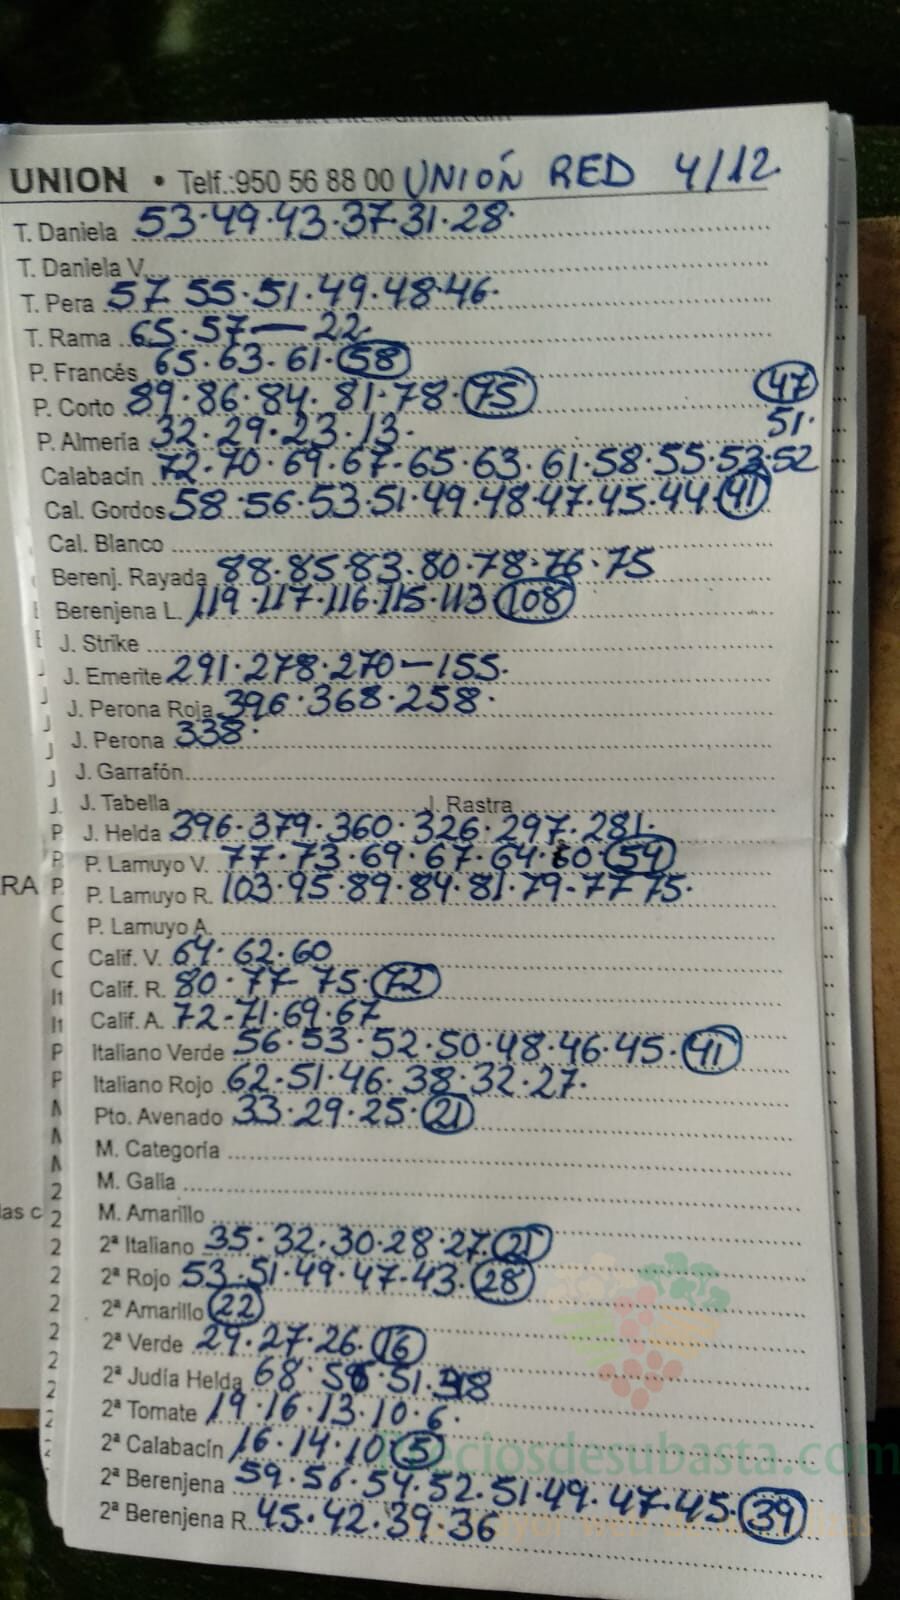 UNION • Telf.:950 56 88 00 UNIÓN RED 4/12
T. Daniela 53·49·43·37·31·28·
T. Daniela V.
T. Pera 57 55·51·49·48·46·
T. Rama 65·57—22·
P. Francés 65·63·61·58
P. Corto 89·86·84·81·78·75 47
P. Almería 32·29·23·13· 51·
Calabacín 72·70·69·67·65·63·61·58·55·53·52
Cal. Gordos 58·56·53·51·49·48·47·45·44·41
Cal. Blanco
Berenj. Rayada 88·85·83·80·78·76·75
Berenjena L. 119·117·116·115·113 108
J. Strike
J. Emerite 291·278·270—155·
J. Perona Roja 396·368·258·
J. Perona 338·
J. Garrafón
J. Tabella J. Rastra
J. Helda 396·379·360·326·297·281·
P. Lamuyo V. 77·73·69·67·64·60·54
RA P. Lamuyo R. 103·95·89·84·81·79-77 75·
P. Lamuyo A.
Calif. V. 64·62·60
Calif. R. 80·77-75·72
Calif. A. 72-71·69·67
Italiano Verde 56·53·52·50·48·46·45·41
Italiano Rojo 62·51·46·38·32·27·
Pto. Avenado 33·29·25·21
M. Categoría
M. Galia
M. Amarillo
2ª Italiano 35·32·30·28·27·21
2ª Rojo 53·51·49·47·43·28
2ª Amarillo 22
2ª Verde 29·27·26·16
2ª Judía Helda 68· 51·
2ª Tomate 19·16·13·10·6·
2ª Calabacín 16·14·10·5
Preciosdesubasta.com
2ª Berenjena 59·56·54·52·51·49·47·45·39
2ª Berenjena R. 45·42·39·36